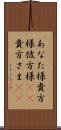 あなた様貴方
様彼方様
貴方さま